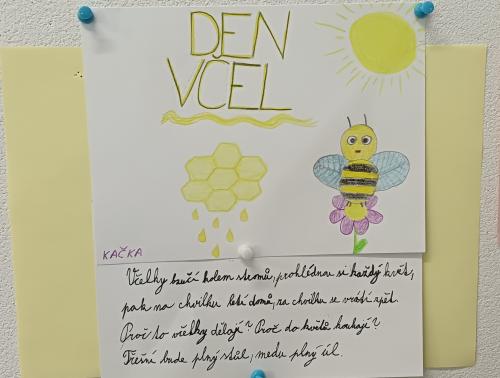 DEN
VČEL
KAČKA
Včelky bzučí kolem stromů, prohlédnou si každý květ,
pak na chvilku letí domů, za chvilku se vrátí zpět.
Proč to včelky dělají? Proč do květů koukají?
Třešní bude plný stůl, medu plný úl.